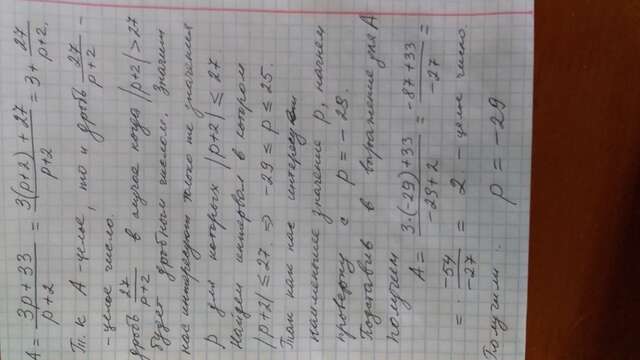 A = \frac{3p+33}{p+2} = \frac{3(p+2)+27}{p+2} = 3 + \frac{27}{p+2},
Т.к А - целое, то и дробь \frac{27}{p+2} -
- целое число.
дробь \frac{27}{p+2} в случае когда |p+2| > 27
будет дробным числом. Значит
нас интересуют только те значения
p для которых |p+2| ≤ 27
Найдем интервал в котором
|p+2| ≤ 27. ⇒ -29 ≤ p ≤ 25.
Так как нас интересует
наименьшее значение p, начнем
проверку с p = -29.
Подставив в выражение для А
получим
A = \frac{3·(-29)+33}{-29+2} = \frac{-87+33}{-27} =
= \frac{-54}{-27} = 2 - целое число.
Получили p = -29